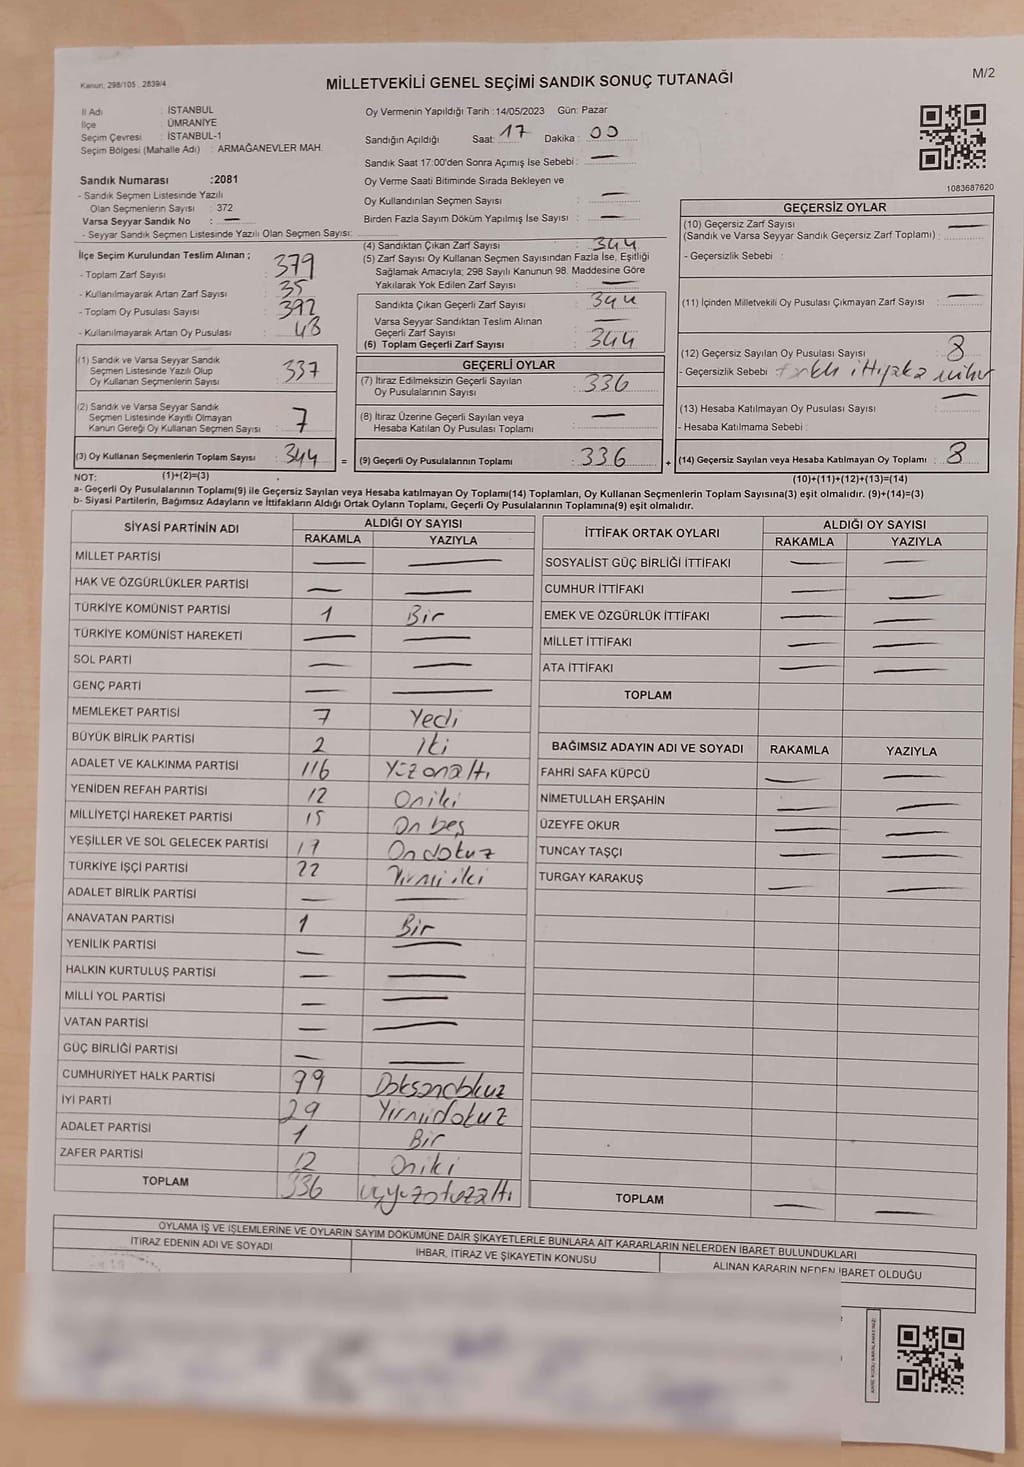 Kanun; 298/105 , 2839/4
MİLLETVEKİLİ GENEL SEÇİMİ SANDIK SONUÇ TUTANAĞI
M/2
İl Adı : İSTANBUL
İlçe : ÜMRANİYE
Seçim Çevresi : İSTANBUL-1
Seçim Bölgesi (Mahalle Adı) : ARMAĞANEVLER MAH.
Sandık Numarası :2081
- Sandık Seçmen Listesinde Yazılı
Olan Seçmenlerin Sayısı : 372
Varsa Seyyar Sandık No : —
- Seyyar Sandık Seçmen Listesinde Yazılı Olan Seçmen Sayısı:
Oy Vermenin Yapıldığı Tarih : 14/05/2023 Gün: Pazar
Sandığın Açıldığı Saat: 17 Dakika : 00
Sandık Saat 17:00'den Sonra Açımış İse Sebebi : —
Oy Verme Saati Bitiminde Sırada Bekleyen ve
Oy Kullandırılan Seçmen Sayısı : —
Birden Fazla Sayım Döküm Yapılmış İse Sayısı : —
1083687620
İlçe Seçim Kurulundan Teslim Alınan ;
- Toplam Zarf Sayısı : 379
- Kullanılmayarak Artan Zarf Sayısı : 35
- Toplam Oy Pusulası Sayısı : 392
- Kullanılmayarak Artan Oy Pusulası : 48
(1) Sandık ve Varsa Seyyar Sandık
Seçmen Listesinde Yazılı Olup
Oy Kullanan Seçmenlerin Sayısı : 337
(2) Sandık ve Varsa Seyyar Sandık
Seçmen Listesinde Kayıtlı Olmayan
Kanun Gereği Oy Kullanan Seçmen Sayısı : 7
(3) Oy Kullanan Seçmenlerin Toplam Sayısı : 344 =
(4) Sandıktan Çıkan Zarf Sayısı : 344
(5) Zarf Sayısı Oy Kullanan Seçmen Sayısından Fazla İse, Eşitliği
Sağlamak Amacıyla; 298 Sayılı Kanunun 98. Maddesine Göre
Yakılarak Yok Edilen Zarf Sayısı : —
Sandıkta Çıkan Geçerli Zarf Sayısı : 344
Varsa Seyyar Sandıktan Teslim Alınan
Geçerli Zarf Sayısı : —
(6) Toplam Geçerli Zarf Sayısı : 344
GEÇERLİ OYLAR
(7) İtiraz Edilmeksizin Geçerli Sayılan
Oy Pusulalarının Sayısı : 336
(8) İtiraz Üzerine Geçerli Sayılan veya
Hesaba Katılan Oy Pusulası Toplamı : —
(9) Geçerli Oy Pusulalarının Toplamı : 336 +
GEÇERSİZ OYLAR
(10) Geçersiz Zarf Sayısı
(Sandık ve Varsa Seyyar Sandık Geçersiz Zarf Toplamı) : —
- Geçersizlik Sebebi :
(11) İçinden Milletvekili Oy Pusulası Çıkmayan Zarf Sayısı : —
(12) Geçersiz Sayılan Oy Pusulası Sayısı : 8
- Geçersizlik Sebebi : farklı ittifaka mühür
(13) Hesaba Katılmayan Oy Pusulası Sayısı : —
- Hesaba Katılmama Sebebi :
(14) Geçersiz Sayılan veya Hesaba Katılmayan Oy Toplamı : 8
NOT: (1)+(2)=(3) (10)+(11)+(12)+(13)=(14)
a- Geçerli Oy Pusulalarının Toplamı(9) ile Geçersiz Sayılan veya Hesaba katılmayan Oy Toplamı(14) Toplamları, Oy Kullanan Seçmenlerin Toplam Sayısına(3) eşit olmalıdır. (9)+(14)=(3)
b- Siyasi Partilerin, Bağımsız Adayların ve İttifakların Aldığı Ortak Oyların Toplamı, Geçerli Oy Pusulalarının Toplamına(9) eşit olmalıdır.
SİYASİ PARTİNİN ADI ALDIĞI OY SAYISI
RAKAMLA YAZIYLA
MİLLET PARTİSİ — —
HAK VE ÖZGÜRLÜKLER PARTİSİ — —
TÜRKİYE KOMÜNİST PARTİSİ 1 Bir
TÜRKİYE KOMÜNİST HAREKETİ — —
SOL PARTİ — —
GENÇ PARTİ — —
MEMLEKET PARTİSİ 7 Yedi
BÜYÜK BİRLİK PARTİSİ 2 iki
ADALET VE KALKINMA PARTİSİ 116 Yüzonaltı
YENİDEN REFAH PARTİSİ 12 Oniki
MİLLİYETÇİ HAREKET PARTİSİ 15 On beş
YEŞİLLER VE SOL GELECEK PARTİSİ 19 Ondokuz
TÜRKİYE İŞÇİ PARTİSİ 22 Yirmi iki
ADALET BİRLİK PARTİSİ — —
ANAVATAN PARTİSİ 1 Bir
YENİLİK PARTİSİ — —
HALKIN KURTULUŞ PARTİSİ — —
MİLLİ YOL PARTİSİ — —
VATAN PARTİSİ — —
GÜÇ BİRLİĞİ PARTİSİ — —
CUMHURİYET HALK PARTİSİ 99 Doksandokuz
İYİ PARTİ 29 Yirmidokuz
ADALET PARTİSİ 1 Bir
ZAFER PARTİSİ 12 Oniki
TOPLAM 336 üçyüzotuzaltı
İTTİFAK ORTAK OYLARI ALDIĞI OY SAYISI
RAKAMLA YAZIYLA
SOSYALİST GÜÇ BİRLİĞİ İTTİFAKI — —
CUMHUR İTTİFAKI — —
EMEK VE ÖZGÜRLÜK İTTİFAKI — —
MİLLET İTTİFAKI — —
ATA İTTİFAKI — —
TOPLAM
BAĞIMSIZ ADAYIN ADI VE SOYADI RAKAMLA YAZIYLA
FAHRİ SAFA KÜPCÜ — —
NİMETULLAH ERŞAHİN — —
ÜZEYFE OKUR — —
TUNCAY TAŞÇI — —
TURGAY KARAKUŞ — —
TOPLAM — —
OYLAMA İŞ VE İŞLEMLERİNE VE OYLARIN SAYIM DÖKÜMÜNE DAİR ŞİKAYETLERLE BUNLARA AİT KARARLARIN NELERDEN İBARET BULUNDUKLARI
İTİRAZ EDENİN ADI VE SOYADI İHBAR, İTİRAZ VE ŞİKAYETİN KONUSU ALINAN KARARIN NEDEN İBARET OLDUĞU